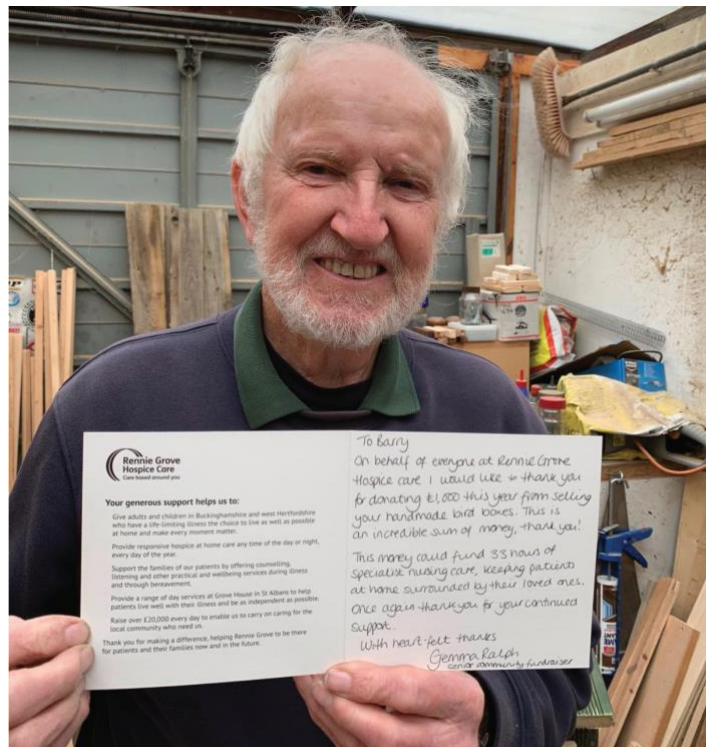 Rennie Grove
Hospice Care
Care based around you
Your generous support helps us to:
Give adults and children in Buckinghamshire and west Hertfordshire
who have a life-limiting illness the choice to live as well as possible
at home and make every moment matter.
Provide responsive hospice at home care any time of the day or night,
every day of the year.
Support the families of our patients by offering counselling,
listening and other practical and wellbeing services during illness
and through bereavement.
Provide a range of day services at Grove House in St Albans to help
patients live well with their illness and be as independent as possible.
Raise over £20,000 every day to enable us to carry on caring for the
local community who need us.
Thank you for making a difference, helping Rennie Grove to be there
for patients and their families now and in the future.
To Barry
On behalf of everyone at Rennie Grove
Hospice care I would like to thank you
for donating £1,000 this year from selling
your handmade bird boxes. This is
an incredible sum of money, thank you!
This money could fund 33 hours of
specialist nursing care, keeping patients
at home surrounded by their loved ones.
Once again thank you for your continued
support.
With heart-felt thanks
Gemma Ralph
senior community fundraiser